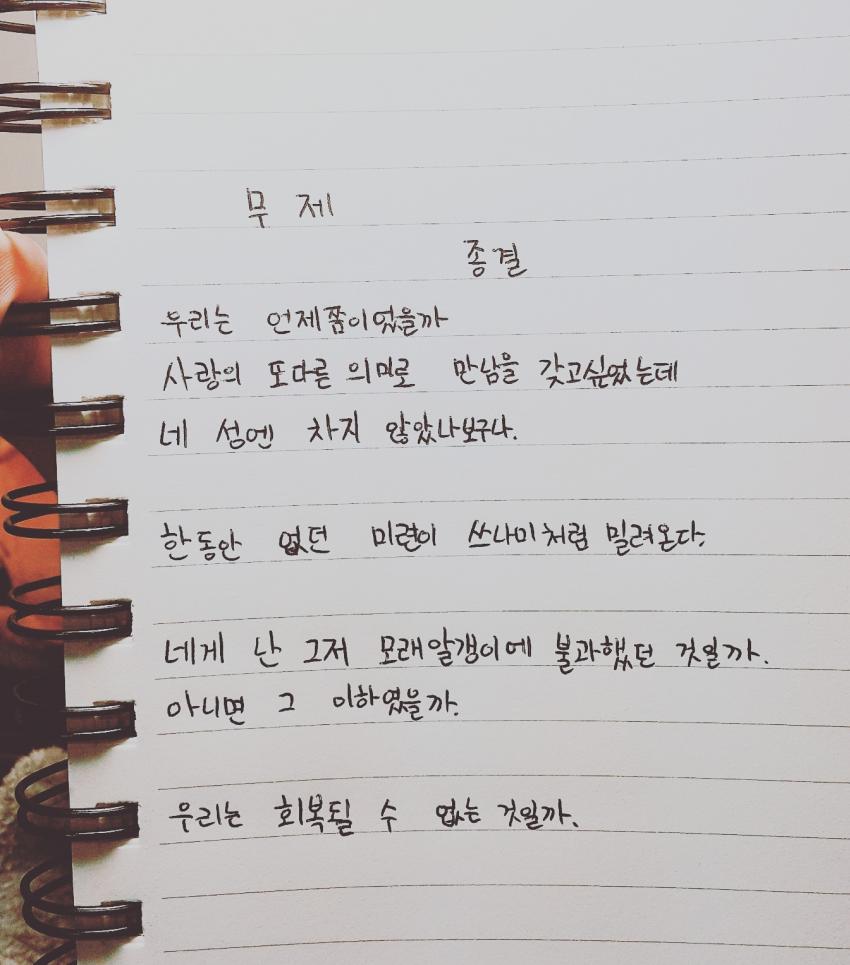 무 제
종결
우리는 언제쯤이었을까
사랑의 또다른 의미로 만남을 갖고싶었는데
네 성엔 차지 않았나보구나.
한동안 없던 미련이 쓰나미처럼 밀려온다.
네게 난 그저 모래알갱이에 불과했던 것일까.
아니면 그 이하였을까.
우리는 회복될 수 없는 것일까.